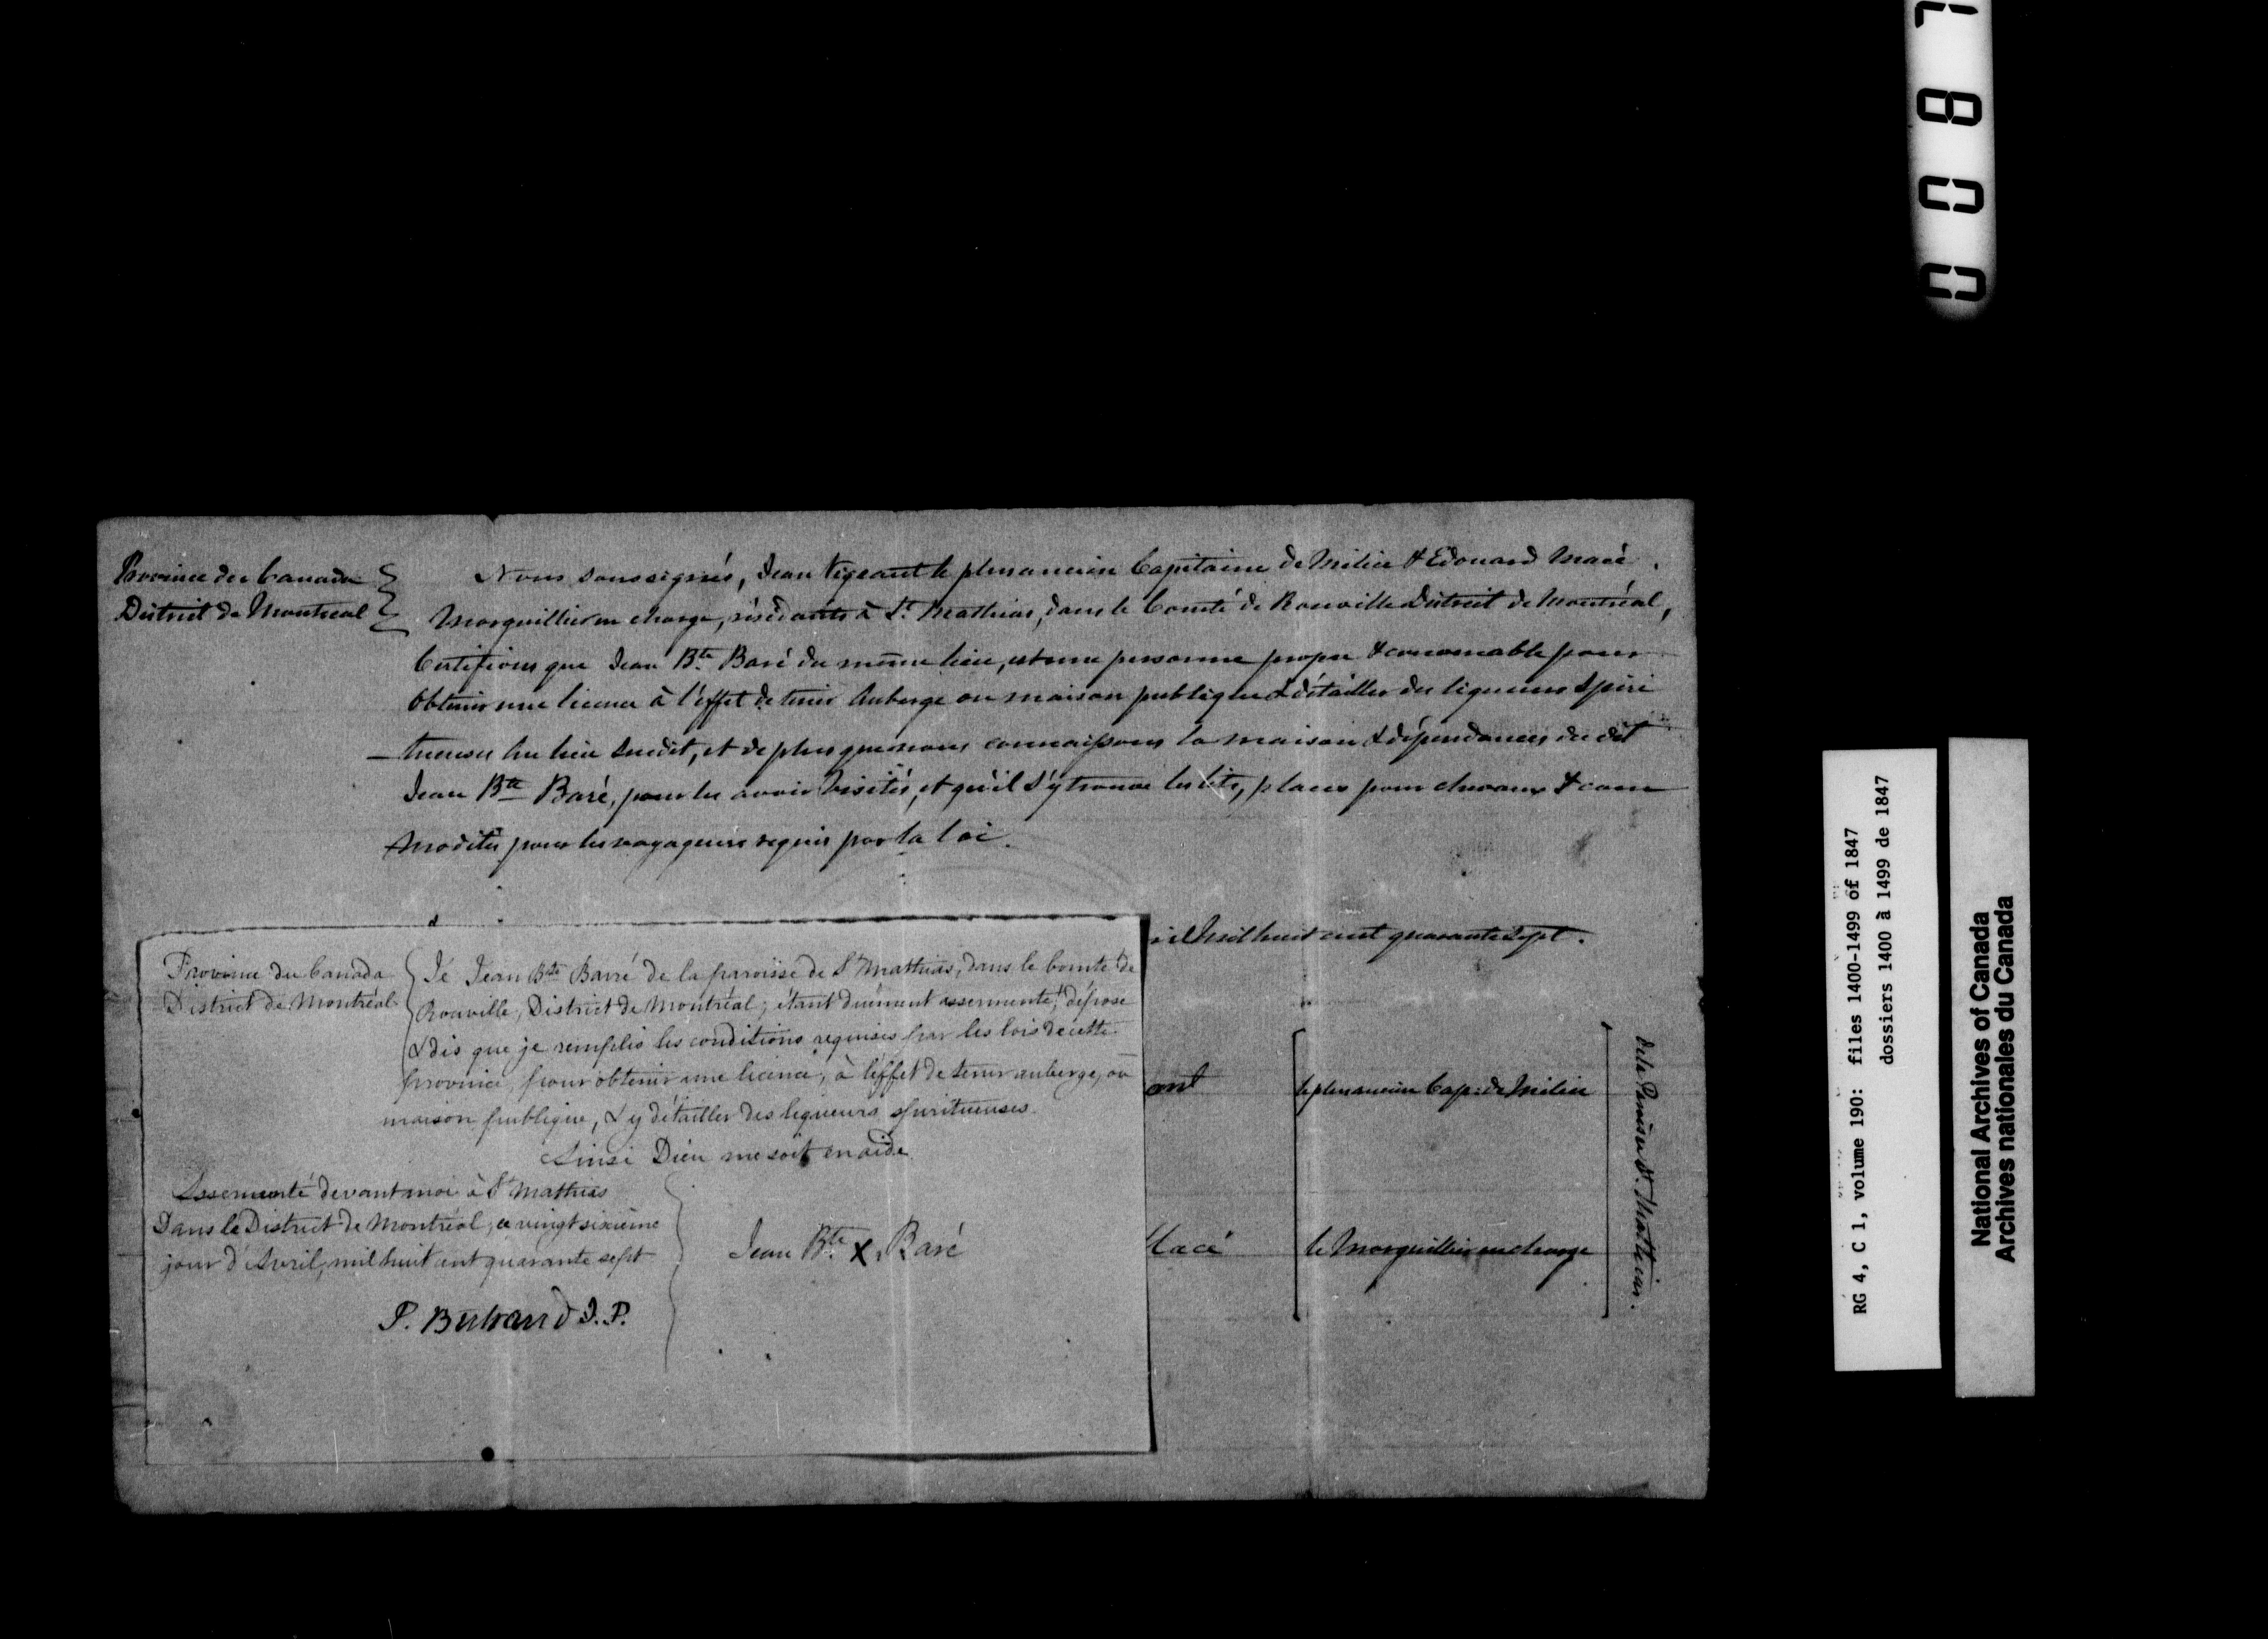 Province du Canada
District de Montreal
Nous soussignés, Jean Vigeant le plus ancien Capitaine de Milice & Edouard Macé
Marguillier en charge, résidants à St. Mathias, dans le Comté de Rouville District de Montréal,
Certifions que Jean Bte Baré du même lieu, est une personne propre & convenable pour
Obtenir une licence à l'effet de tenir Auberge ou maison publique & détailler des liqueurs Spiri
-tueuses Au lieu Susdit, et de plus que nous connaissons la maison & dépendances du dit
Jean Bte Baré, pour les avoir Visités, et qu'il S'y trouve les lits, places pour chevaux & com
modités pour les voyageurs requis par la loi.
il Mil huit cent quarante Sept.
ant
le plus ancien Cap: de Milice
Macé
le Marguillier en charge
de la Paroisse St. Mathias.
Province du Canada
District de Montréal
Je Jean Bte Barré de la paroisse de St Mathias, dans le Comté de
Rouville, District de Montréal; étant duement assermenté, dépose
& dis que je remplis les conditions requises par les lois de cette
province pour obtenir une licence, à l'effet de tenir auberge, ou
maison publique, & y détailler des liqueurs spiritueuses.
Ainsi Dieu me soit en aide
Assermenté devant moi à St Mathias
Dans le District de Montréal, ce vingt sixième
jour d'Avril, mil huit cent quarante sept
Jean Bte X Baré
P. Bertrand J. P.
0087
RG 4, C 1, volume 190: files 1400-1499 of 1847
dossiers 1400 à 1499 de 1847
National Archives of Canada
Archives nationales du Canada